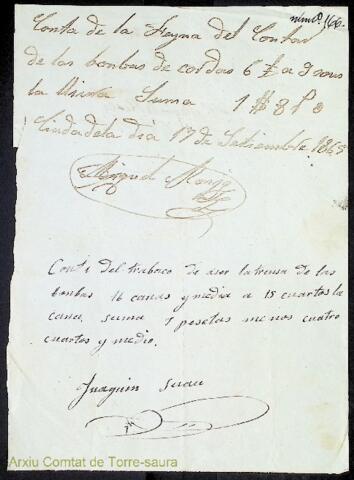 númº 166.
Conta de la Fayna del Contar
de las bombas de cordas 6 ₤ a 9 sous
la lliura Suma 1 $ 8 P o
Ciudadela dia 17 de Setiembre 1865
Miguel
Contˢ del trabaco de aser la trensa de las
bonbas 16 canas y media a 15 cuartos la
cana, suma 7 pesetas menos cuatro
cuartos y medio.
Juaquin Suau
Arxiu Comtat de Torre-saura